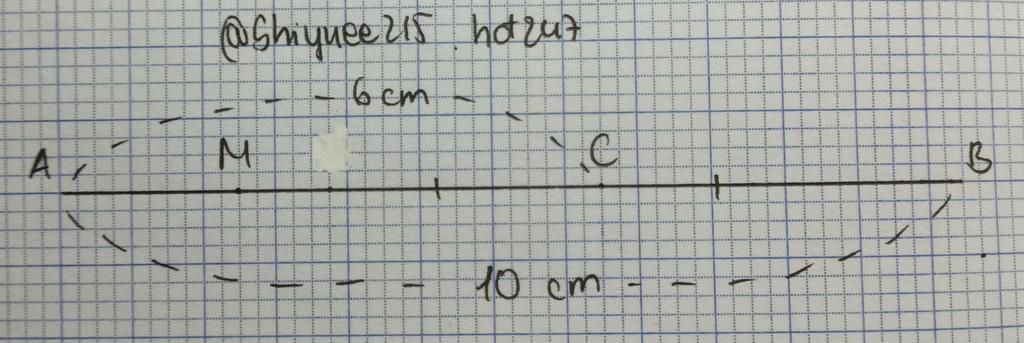 @Shiyuee215 . hot247
6 cm
A M C B
10 cm